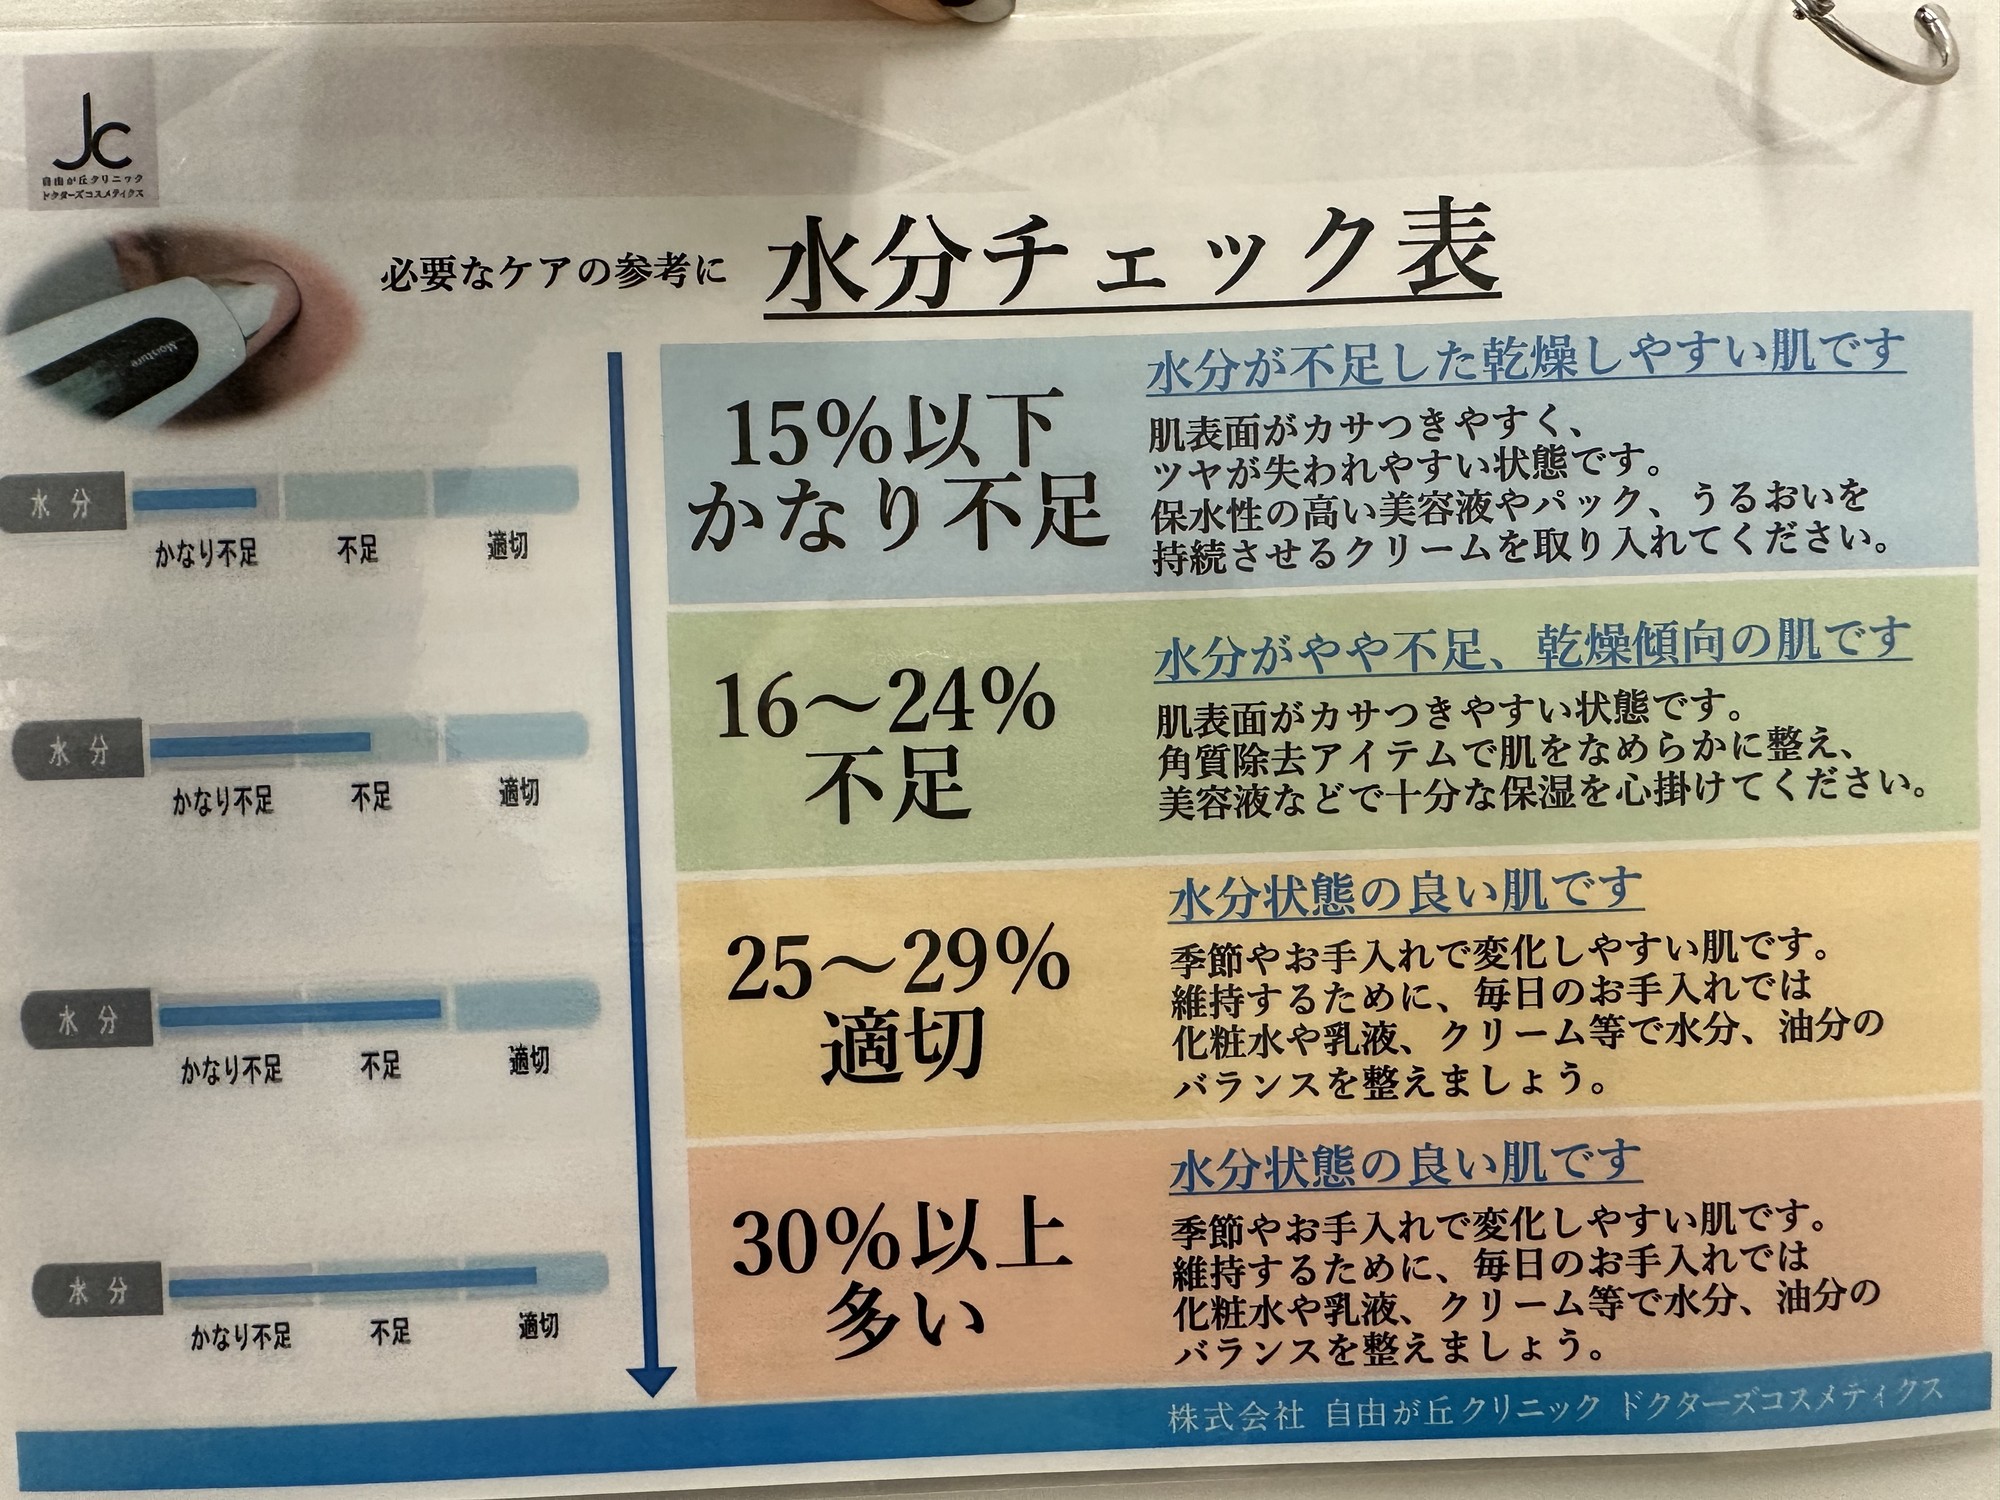 Jc
自由が丘クリニック
ドクターズコスメティクス
必要なケアの参考に 水分チェック表
Moisture
水分
かなり不足 不足 適切
15%以下
かなり不足
水分が不足した乾燥しやすい肌です
肌表面がカサつきやすく、
ツヤが失われやすい状態です。
保水性の高い美容液やパック、うるおいを
持続させるクリームを取り入れてください。
水分
かなり不足 不足 適切
16～24%
不足
水分がやや不足、乾燥傾向の肌です
肌表面がカサつきやすい状態です。
角質除去アイテムで肌をなめらかに整え、
美容液などで十分な保湿を心掛けてください。
水分
かなり不足 不足 適切
25～29%
適切
水分状態の良い肌です
季節やお手入れで変化しやすい肌です。
維持するために、毎日のお手入れでは
化粧水や乳液、クリーム等で水分、油分の
バランスを整えましょう。
水分
かなり不足 不足 適切
30%以上
多い
水分状態の良い肌です
季節やお手入れで変化しやすい肌です。
維持するために、毎日のお手入れでは
化粧水や乳液、クリーム等で水分、油分の
バランスを整えましょう。
株式会社 自由が丘クリニック ドクターズコスメティクス